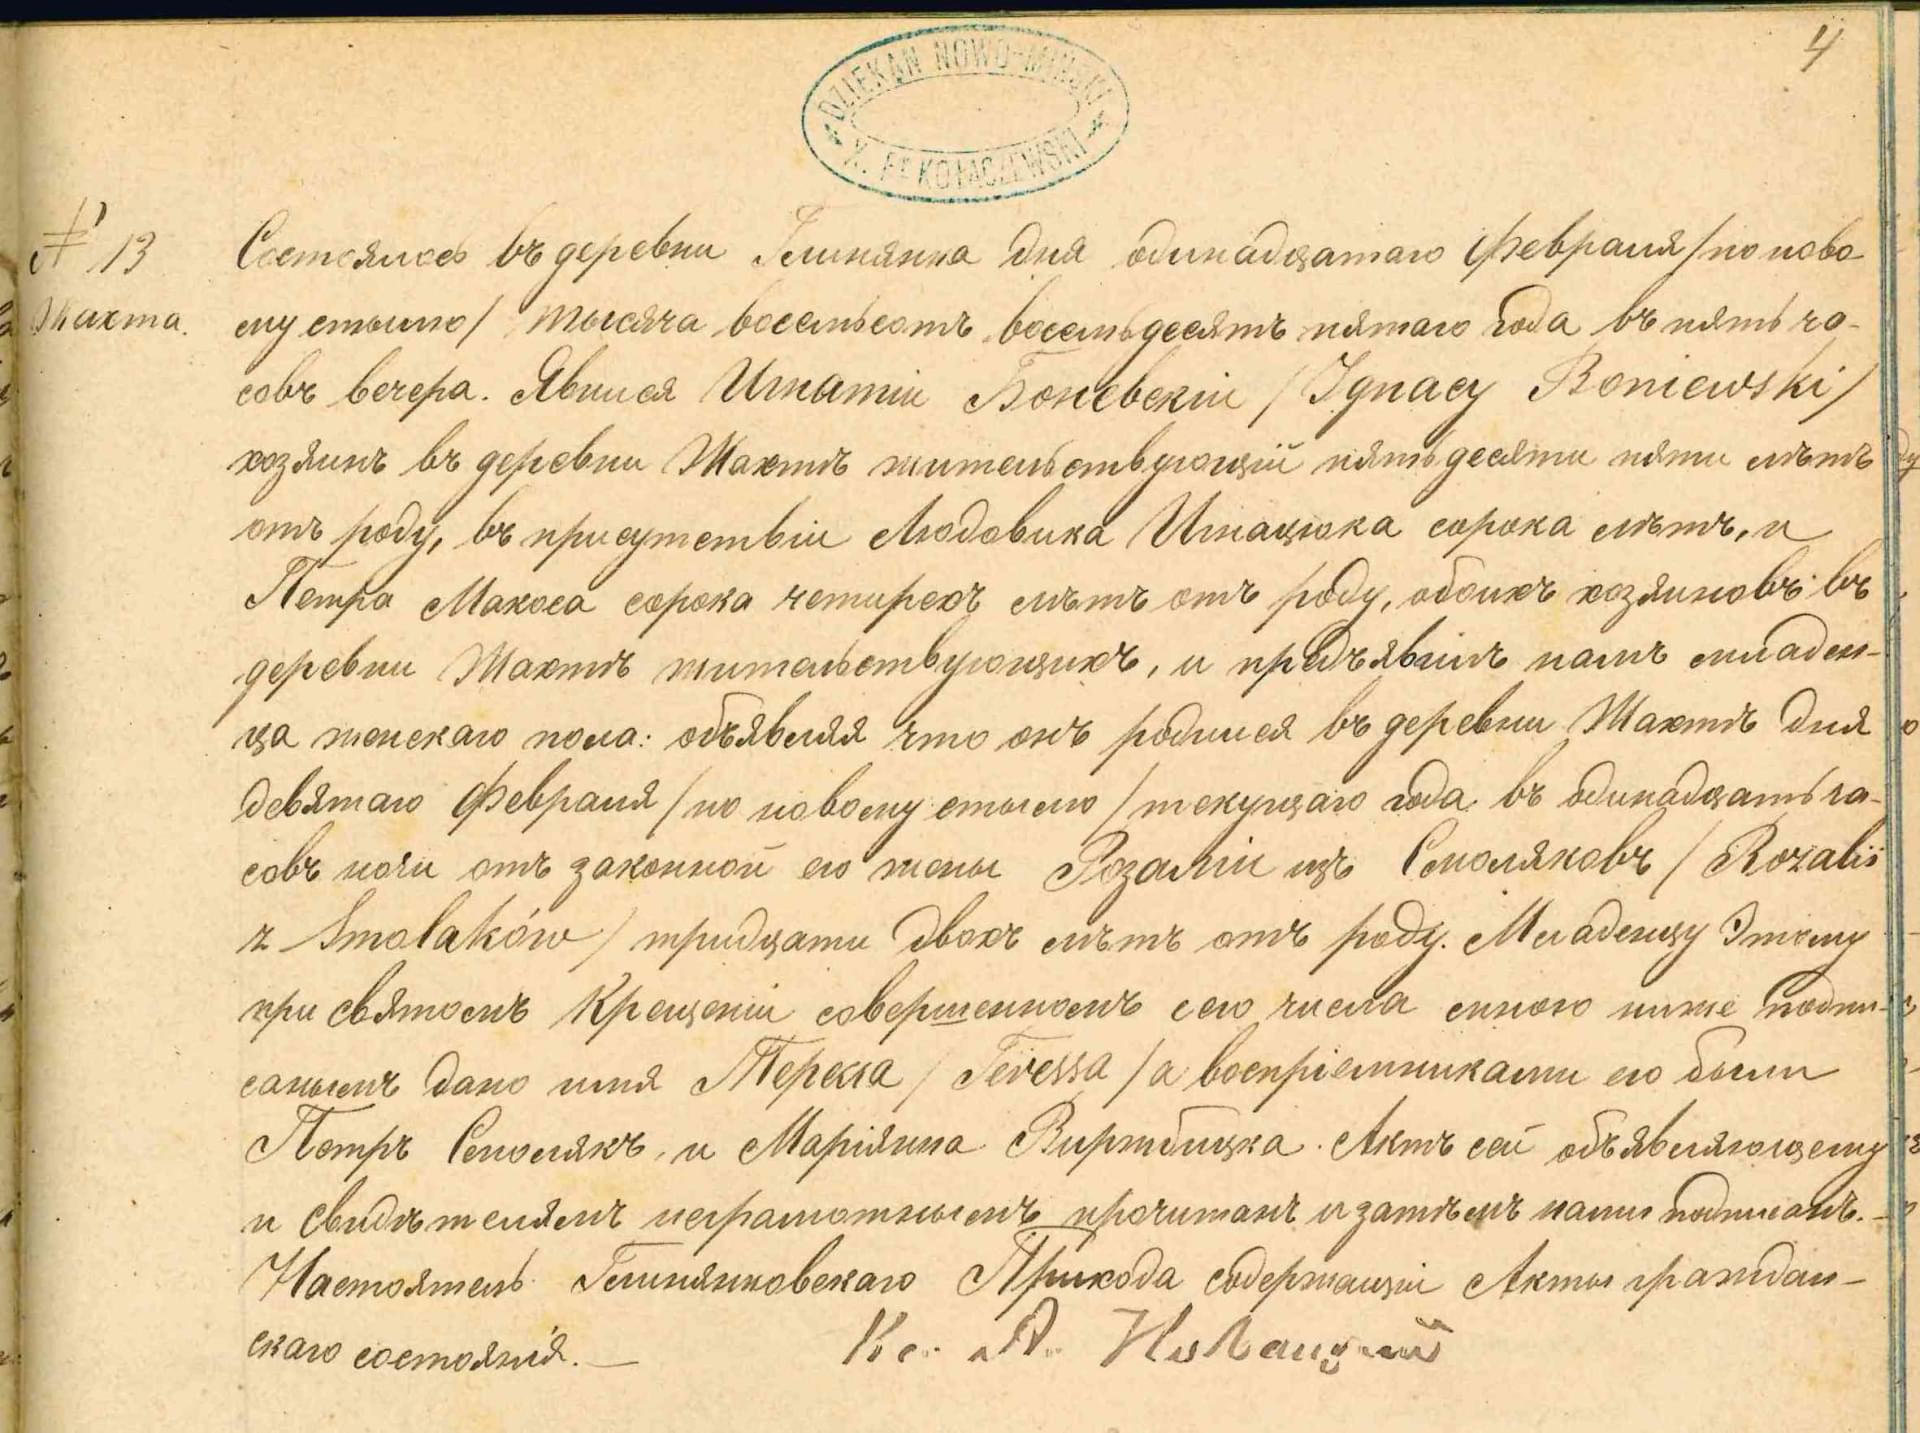 4
DZIEKAN NOWO-MIŃSKI
X. Fr KOŁACZEWSKI
№ 13
Жахта.
Состоялось въ деревни Глинянка дня одинадцатаго Февраля /по ново-
му стылю/ тысяча восемьсотъ восемьдесятъ пятаго года въ пять ча-
совъ вечера. Явился Игнатiи Боневскiи /Ignacy Boniewski/
хозяинъ въ деревни Жахтѣ жительствующiй пятьдесяти пяти лѣтъ
отъ роду, въ присутствiи Людовика Игнацюка сорока лѣтъ, и
Петра Макоса сорока четирехъ лѣтъ отъ роду, обоихъ хозяиновъ въ
деревни Жахтѣ жительствующихъ, и предъявилъ намъ младен-
ца женскаго пола: объявляя что онъ родился въ деревни Жахтѣ дня
девятаго Февраля /по новому стылю/ текущаго года въ одинадцать ча-
совъ ночи отъ законной его жены Розалiи изъ Смоляковъ /Rozalii
z Smolaków/ тридцати двохъ лѣтъ отъ роду. Младенцу Этому
при святомъ Крещенiи совершенномъ сего числа мною ниже подпи-
санымъ дано имя Тереса /Teressa/ а воспрiемниками его были
Петръ Смолякъ, и Марiянна Виржбицка. Актъ сей объявляющему
и свидѣтелямъ неграмотнымъ прочитанъ и затѣмъ нами подписанъ.—
Настоятель Глинянковскаго Прихода содержащiи Акты граждан-
скаго состоянiя.— Кс. А.